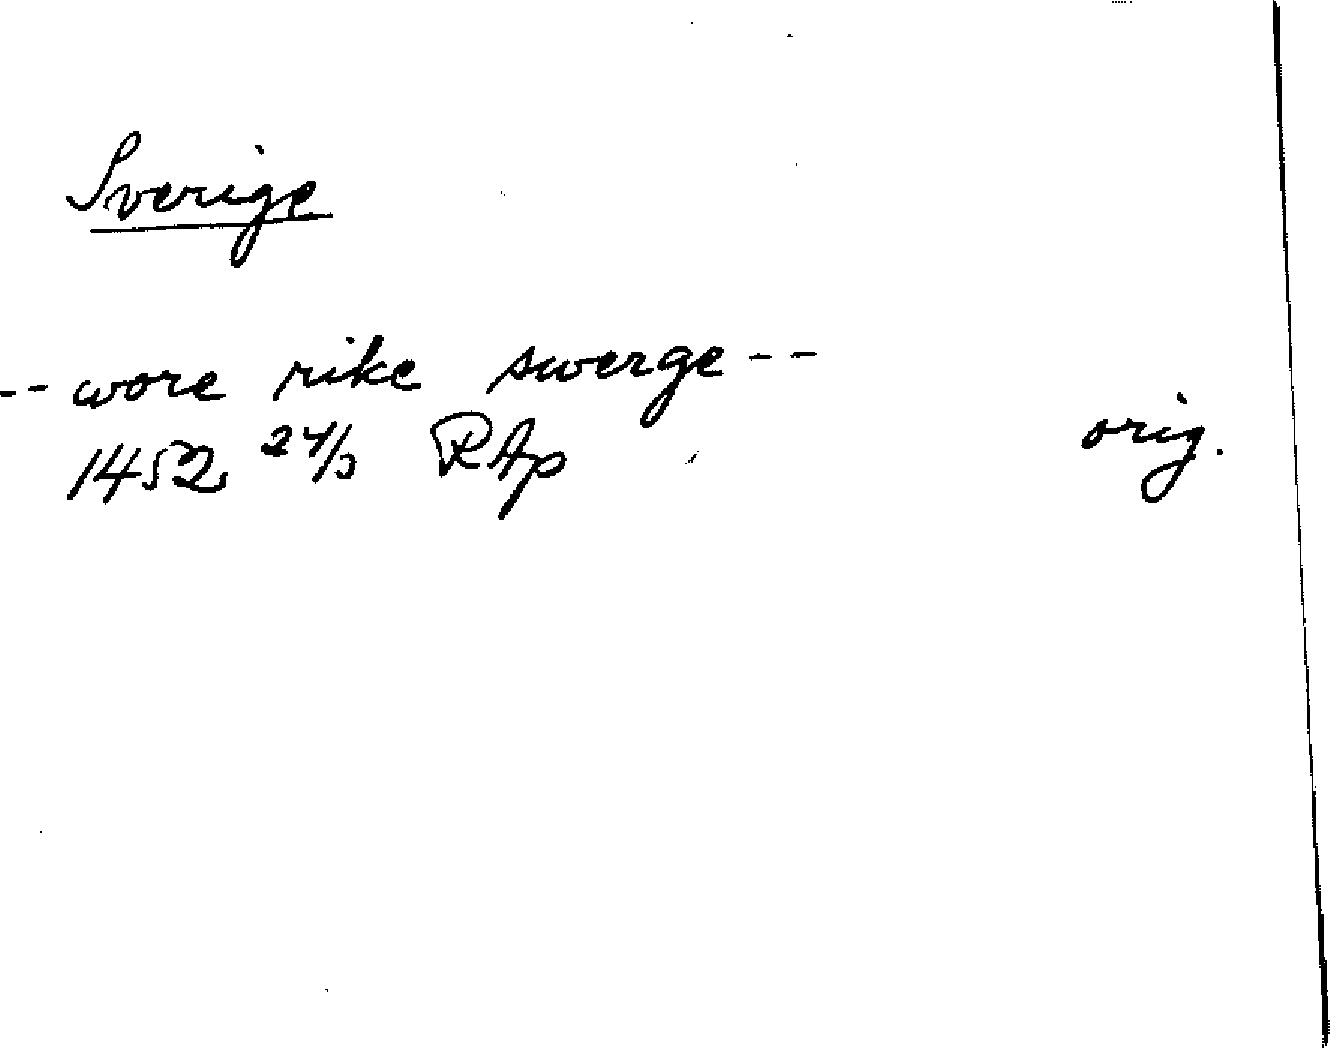 Sverige
-- wore rike swerge --
1452 24/3 RAp orig.